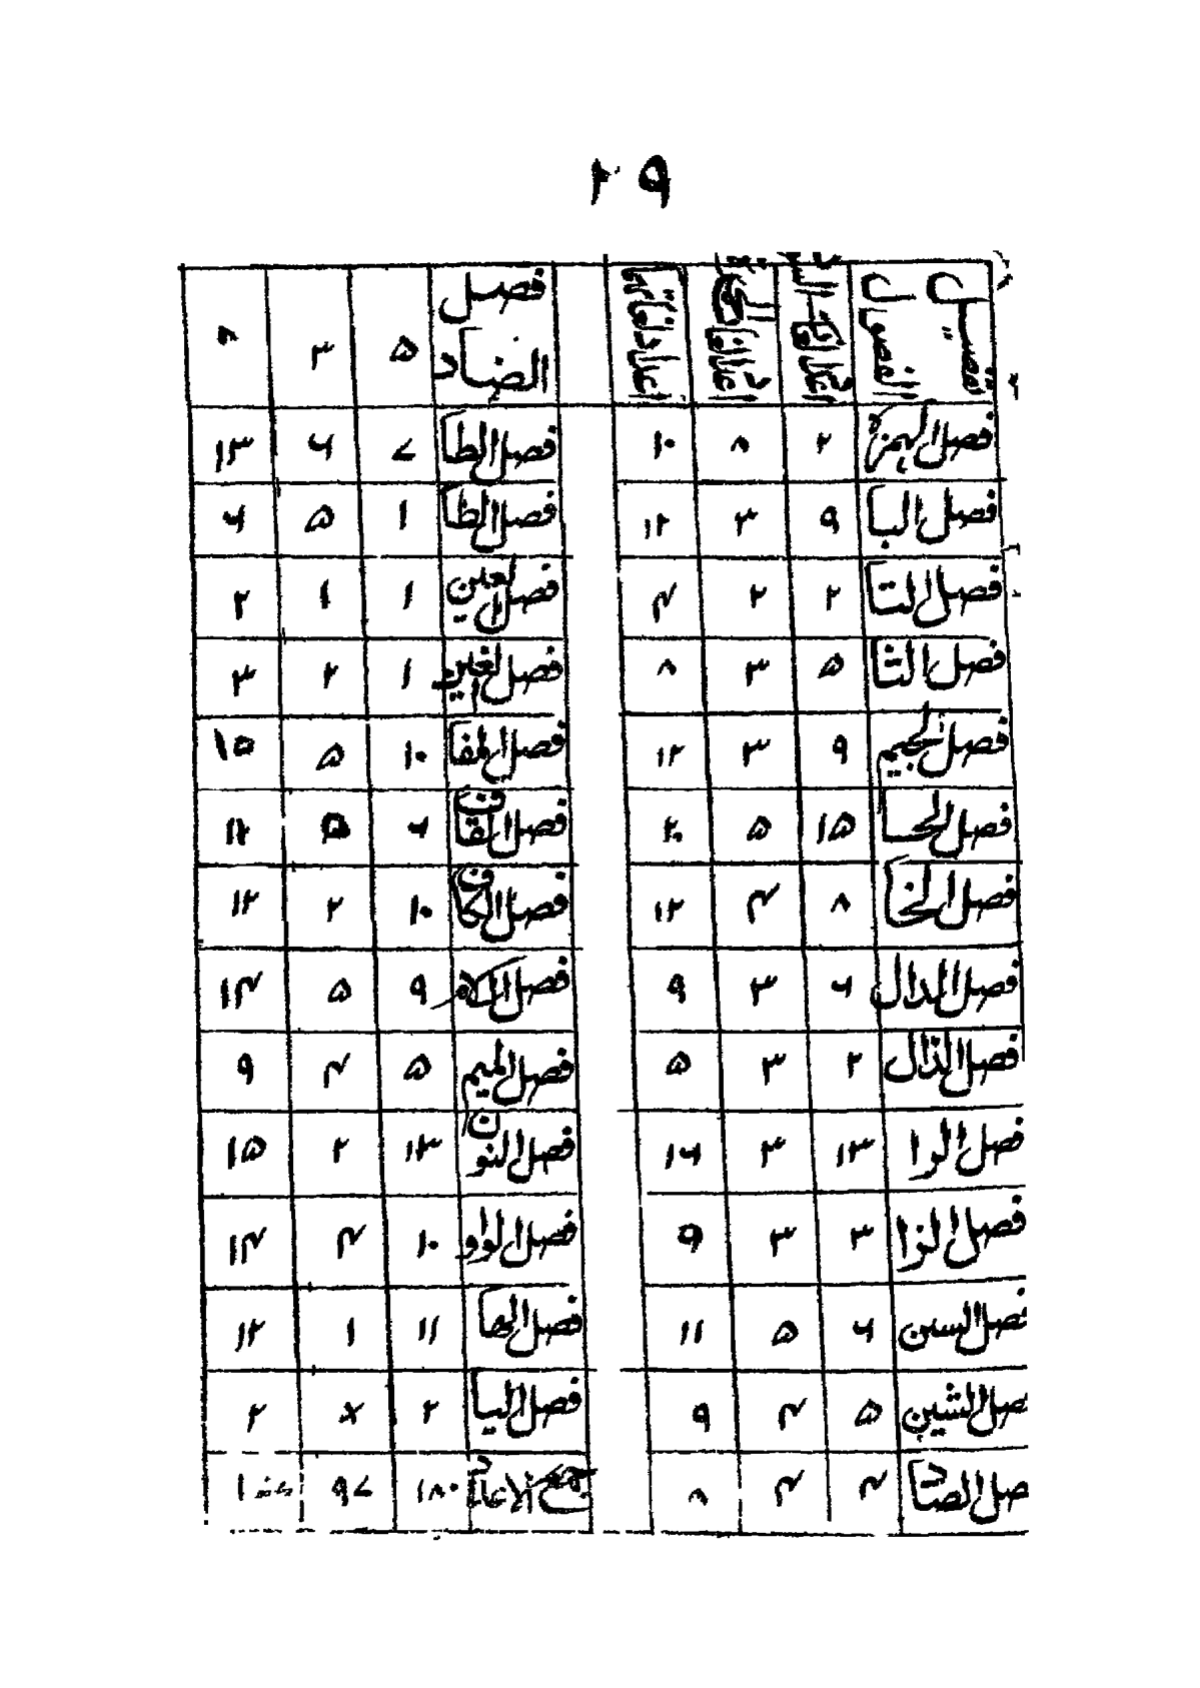 ٢٩
تفصيل الفصول
فصل الهمزة ٢ ٨ ١٠
فصل البا ٩ ٣ ١٢
فصل التا ٢ ٢ ٤
فصل الثا ٥ ٣ ٨
فصل الجيم ٩ ٣ ١٢
فصل الحا ١٥ ٥ ٢٠
فصل الخا ٨ ٤ ١٢
فصل الدال ٦ ٣ ٩
فصل الذال ٢ ٣ ٥
فصل الرا ١٣ ٣ ١٦
فصل الزا ٣ ٣ ٩
فصل السين ٦ ٥ ١١
فصل الشين ٥ ٤ ٩
فصل الصاد ٤ ٤ ٨
فصل الضاد ٥ ٣
فصل الطا ٧ ٦ ١٣
فصل الظا ١ ٥ ٦
فصل العين ١ ١ ٢
فصل الغين ١ ٢ ٣
فصل الفا ١٠ ٥ ١٥
فصل القاف ٦
فصل الكاف ١٠ ٢ ١٢
فصل اللام ٩ ٥ ١٤
فصل الميم ٥ ٤ ٩
فصل النون ١٣ ٢ ١٥
فصل الواو ١٠ ٤ ١٤
فصل الها ١١ ١ ١٢
فصل اليا ٢ × ٢
١٨٠ ٩٧